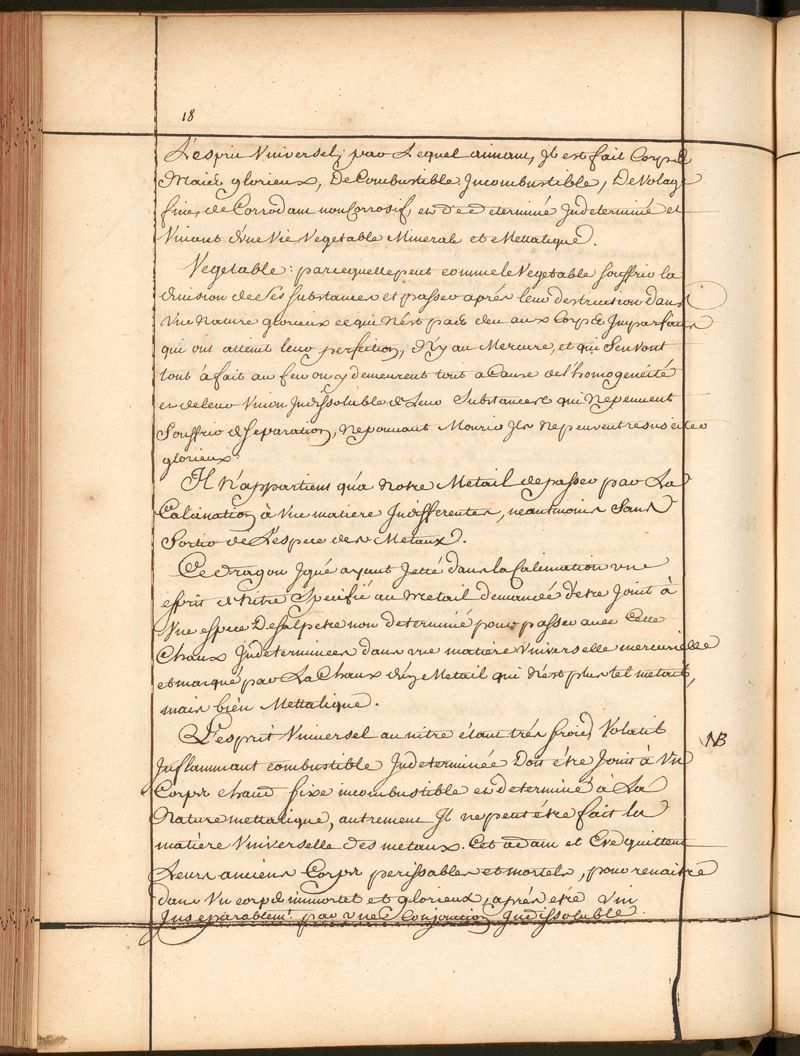 18
L'esprit Universel, par Lequel aimant, Il est fait Corps
Mais glorieux, De Combustible Incombustible, De Volage
fixe, de Corrodant non Corrosif, et de determiné Indeterminé et
Vivant d'une Vie Vegetable Minerale et Mettalique.
Vegetable: parcequelle peut comme le Vegetable souffrir la
division de ses substances et passer aprés leur destruction dans
Une Nature glorieux ce qui n'est pas deu aux Corps Imparfaits
qui ont atteint leur perfection, N'y au Mercure, et qui Sen Vont
tout à fait au feu ou y demeurent tout a Cause de l'homogeneité
et de leur Union Indissoluble de Leur Substances qui Ne peuvent
Souffrir de separation, Ne pouvant Mourir Ils Ne peuvent resusciter
glorieux.
Il N'appartient qu'a Notre Metail de passer par La
Calcination à Une matiere Indifferente, neautmoins Sans
Sortir de L'espece des Metaux.
Ce dragon Igné ayant Jetté dans la Calcination une
esprit de Nitre Specifié au Metail demande d'etre Joint à
Une espece De salpetre non determiné pour passer avec Cette
Chaux Indeterminée dans une matiere Universelle mercurielle
et marqué par La Chaux d'un Metail qui n'est plus tel metail,
mais bien Mettalique.
L'esprit Universel au nitre étant trés froid, Volatil
Inflammant combustible Indeterminée Doit étre Joint à Un
NB
Corps chaud fixe incombustible et determiné à La
Nature mettalique, autrement Il ne peut étre fait la
matiére Universelle des metaux. Cet adam et Eve quittent
Leurs anciens Corps perissables et mortels, pour renaitre
dans Un corps immortel et glorieux, aprés etre Uni
Inseparablemt. par une Conjonction Indissoluble.